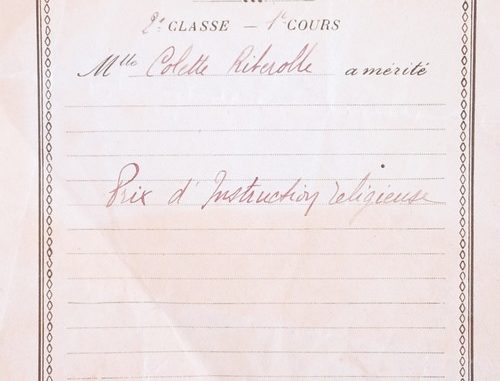 2e CLASSE — 1r COURS
Mlle Colette Riberolle a mérité
Prix d'Instruction religieuse